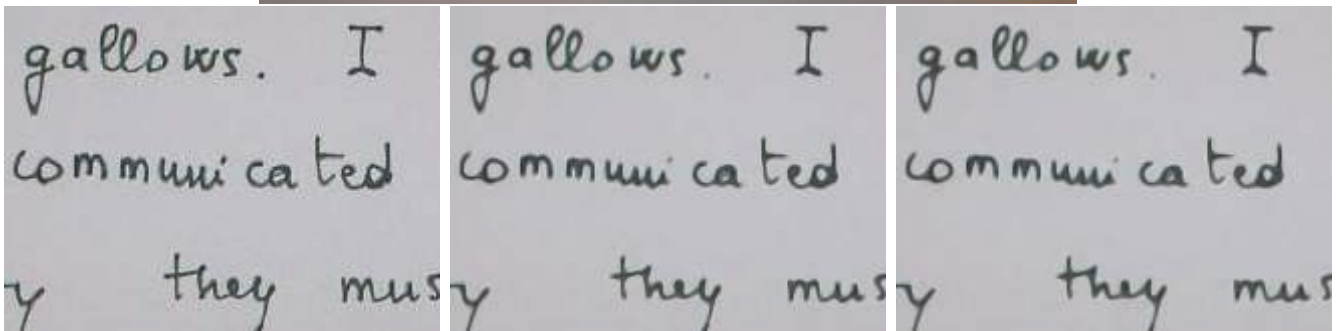 gallows. I
communicated
y they mus
gallows. I
communicated
y they mus
gallows. I
communicated
y they mus